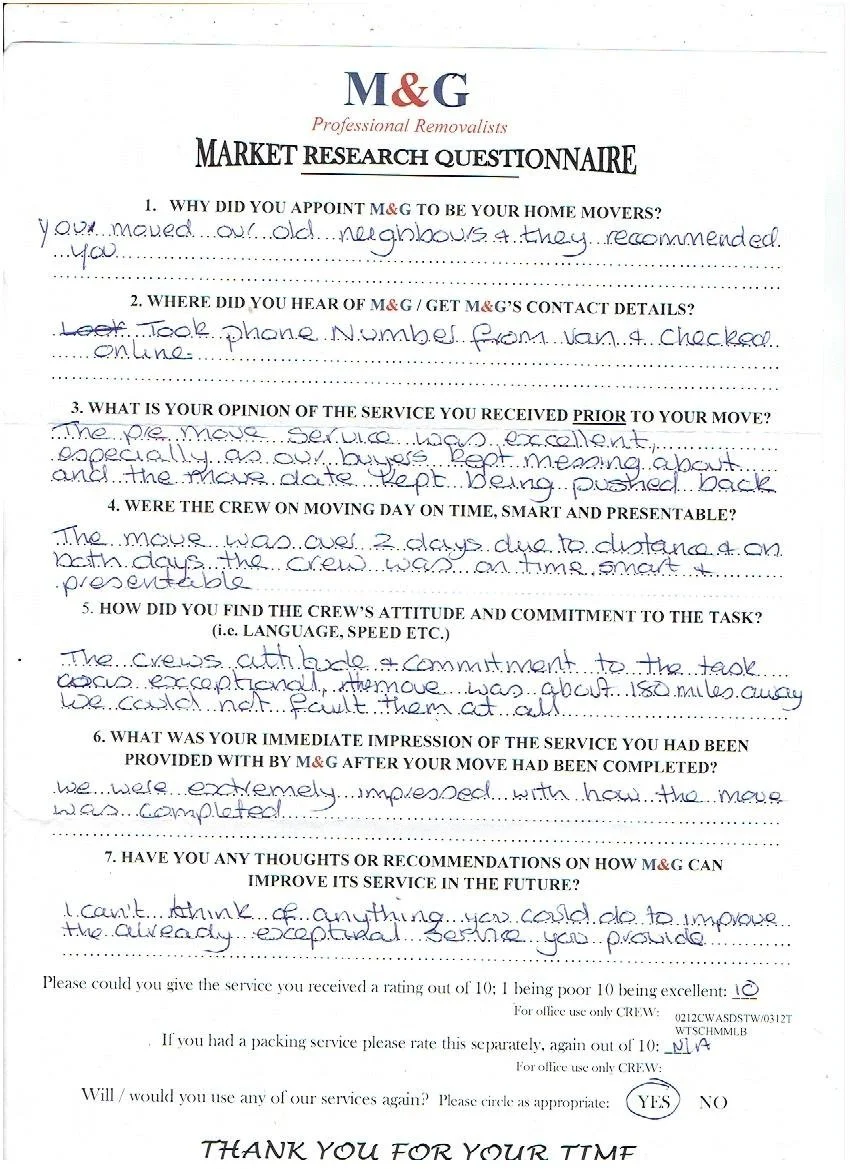 M&G
Professional Removalists
MARKET RESEARCH QUESTIONNAIRE
1. WHY DID YOU APPOINT M&G TO BE YOUR HOME MOVERS?
moved our old neighbours & they recommended
you
2. WHERE DID YOU HEAR OF M&G / GET M&G'S CONTACT DETAILS?
Took phone Number from van & checked
online.
3. WHAT IS YOUR OPINION OF THE SERVICE YOU RECEIVED PRIOR TO YOUR MOVE?
The pre move service was excellent,
especially as our buyers kept messing about
and the move date kept being pushed back
4. WERE THE CREW ON MOVING DAY ON TIME, SMART AND PRESENTABLE?
The move was over 2 days due to distance & on
both days the crew was on time, smart &
presentable
5. HOW DID YOU FIND THE CREW'S ATTITUDE AND COMMITMENT TO THE TASK?
(i.e. LANGUAGE, SPEED ETC.)
The crews attitude & commitment to the task
was exceptional, the move was about 180 miles away
we could not fault them at all
6. WHAT WAS YOUR IMMEDIATE IMPRESSION OF THE SERVICE YOU HAD BEEN
PROVIDED WITH BY M&G AFTER YOUR MOVE HAD BEEN COMPLETED?
we were extremely impressed with how the move
was completed
7. HAVE YOU ANY THOUGHTS OR RECOMMENDATIONS ON HOW M&G CAN
IMPROVE ITS SERVICE IN THE FUTURE?
I can't think of anything you could do to improve
the already service you provide
Please could you give the service you received a rating out of 10; 1 being poor 10 being excellent: 10
For office use only CREW: 0212CWASDSTW/0312T
WTSCHMMLB
If you had a packing service please rate this separately, again out of 10: N/A
For office use only CREW:
Will / would you use any of our services again? Please circle as appropriate: YES NO
THANK YOU FOR YOUR TIME